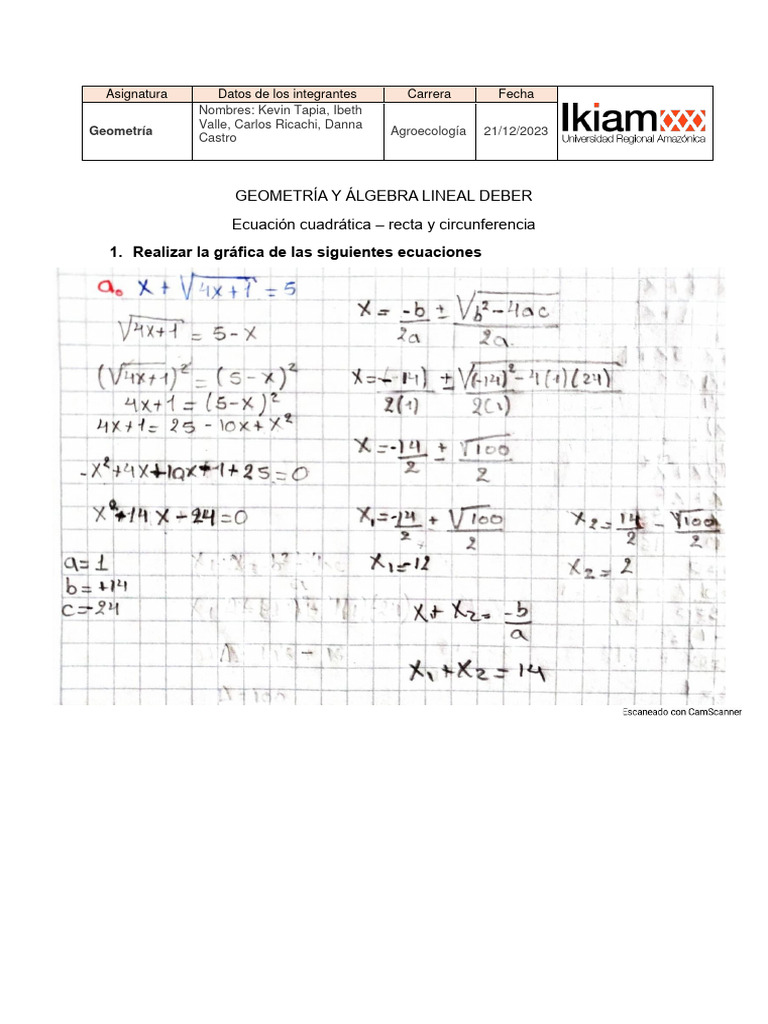 Asignatura Datos de los integrantes Carrera Fecha
Geometría
Nombres: Kevin Tapia, Ibeth
Valle, Carlos Ricachi, Danna
Castro
Agroecología 21/12/2023
Ikiam
Universidad Regional Amazónica
GEOMETRÍA Y ÁLGEBRA LINEAL DEBER
Ecuación cuadrática – recta y circunferencia
1. Realizar la gráfica de las siguientes ecuaciones
a. x + √(4x+1) = 5
√(4x+1) = 5-x
(√(4x+1))² = (5-x)²
4x+1 = (5-x)²
4x+1 = 25 - 10x + x²
-x²+4x+10x+1+25=0
x²+14x-24=0
a=1
b=+14
c=-24
x = -b/2a ± √(b²-4ac)/2a
x = -(-14)/2(1) ± √((-14)²-4(1)(24))/2(1)
x = -14/2 ± √100/2
x₁ = -14/2 + √100/2
x₁=12
x₂ = 14/2 - √100/2
x₂ = 2
x+x₂ = -b/a
x₁+x₂ = 14
Escaneado con CamScanner